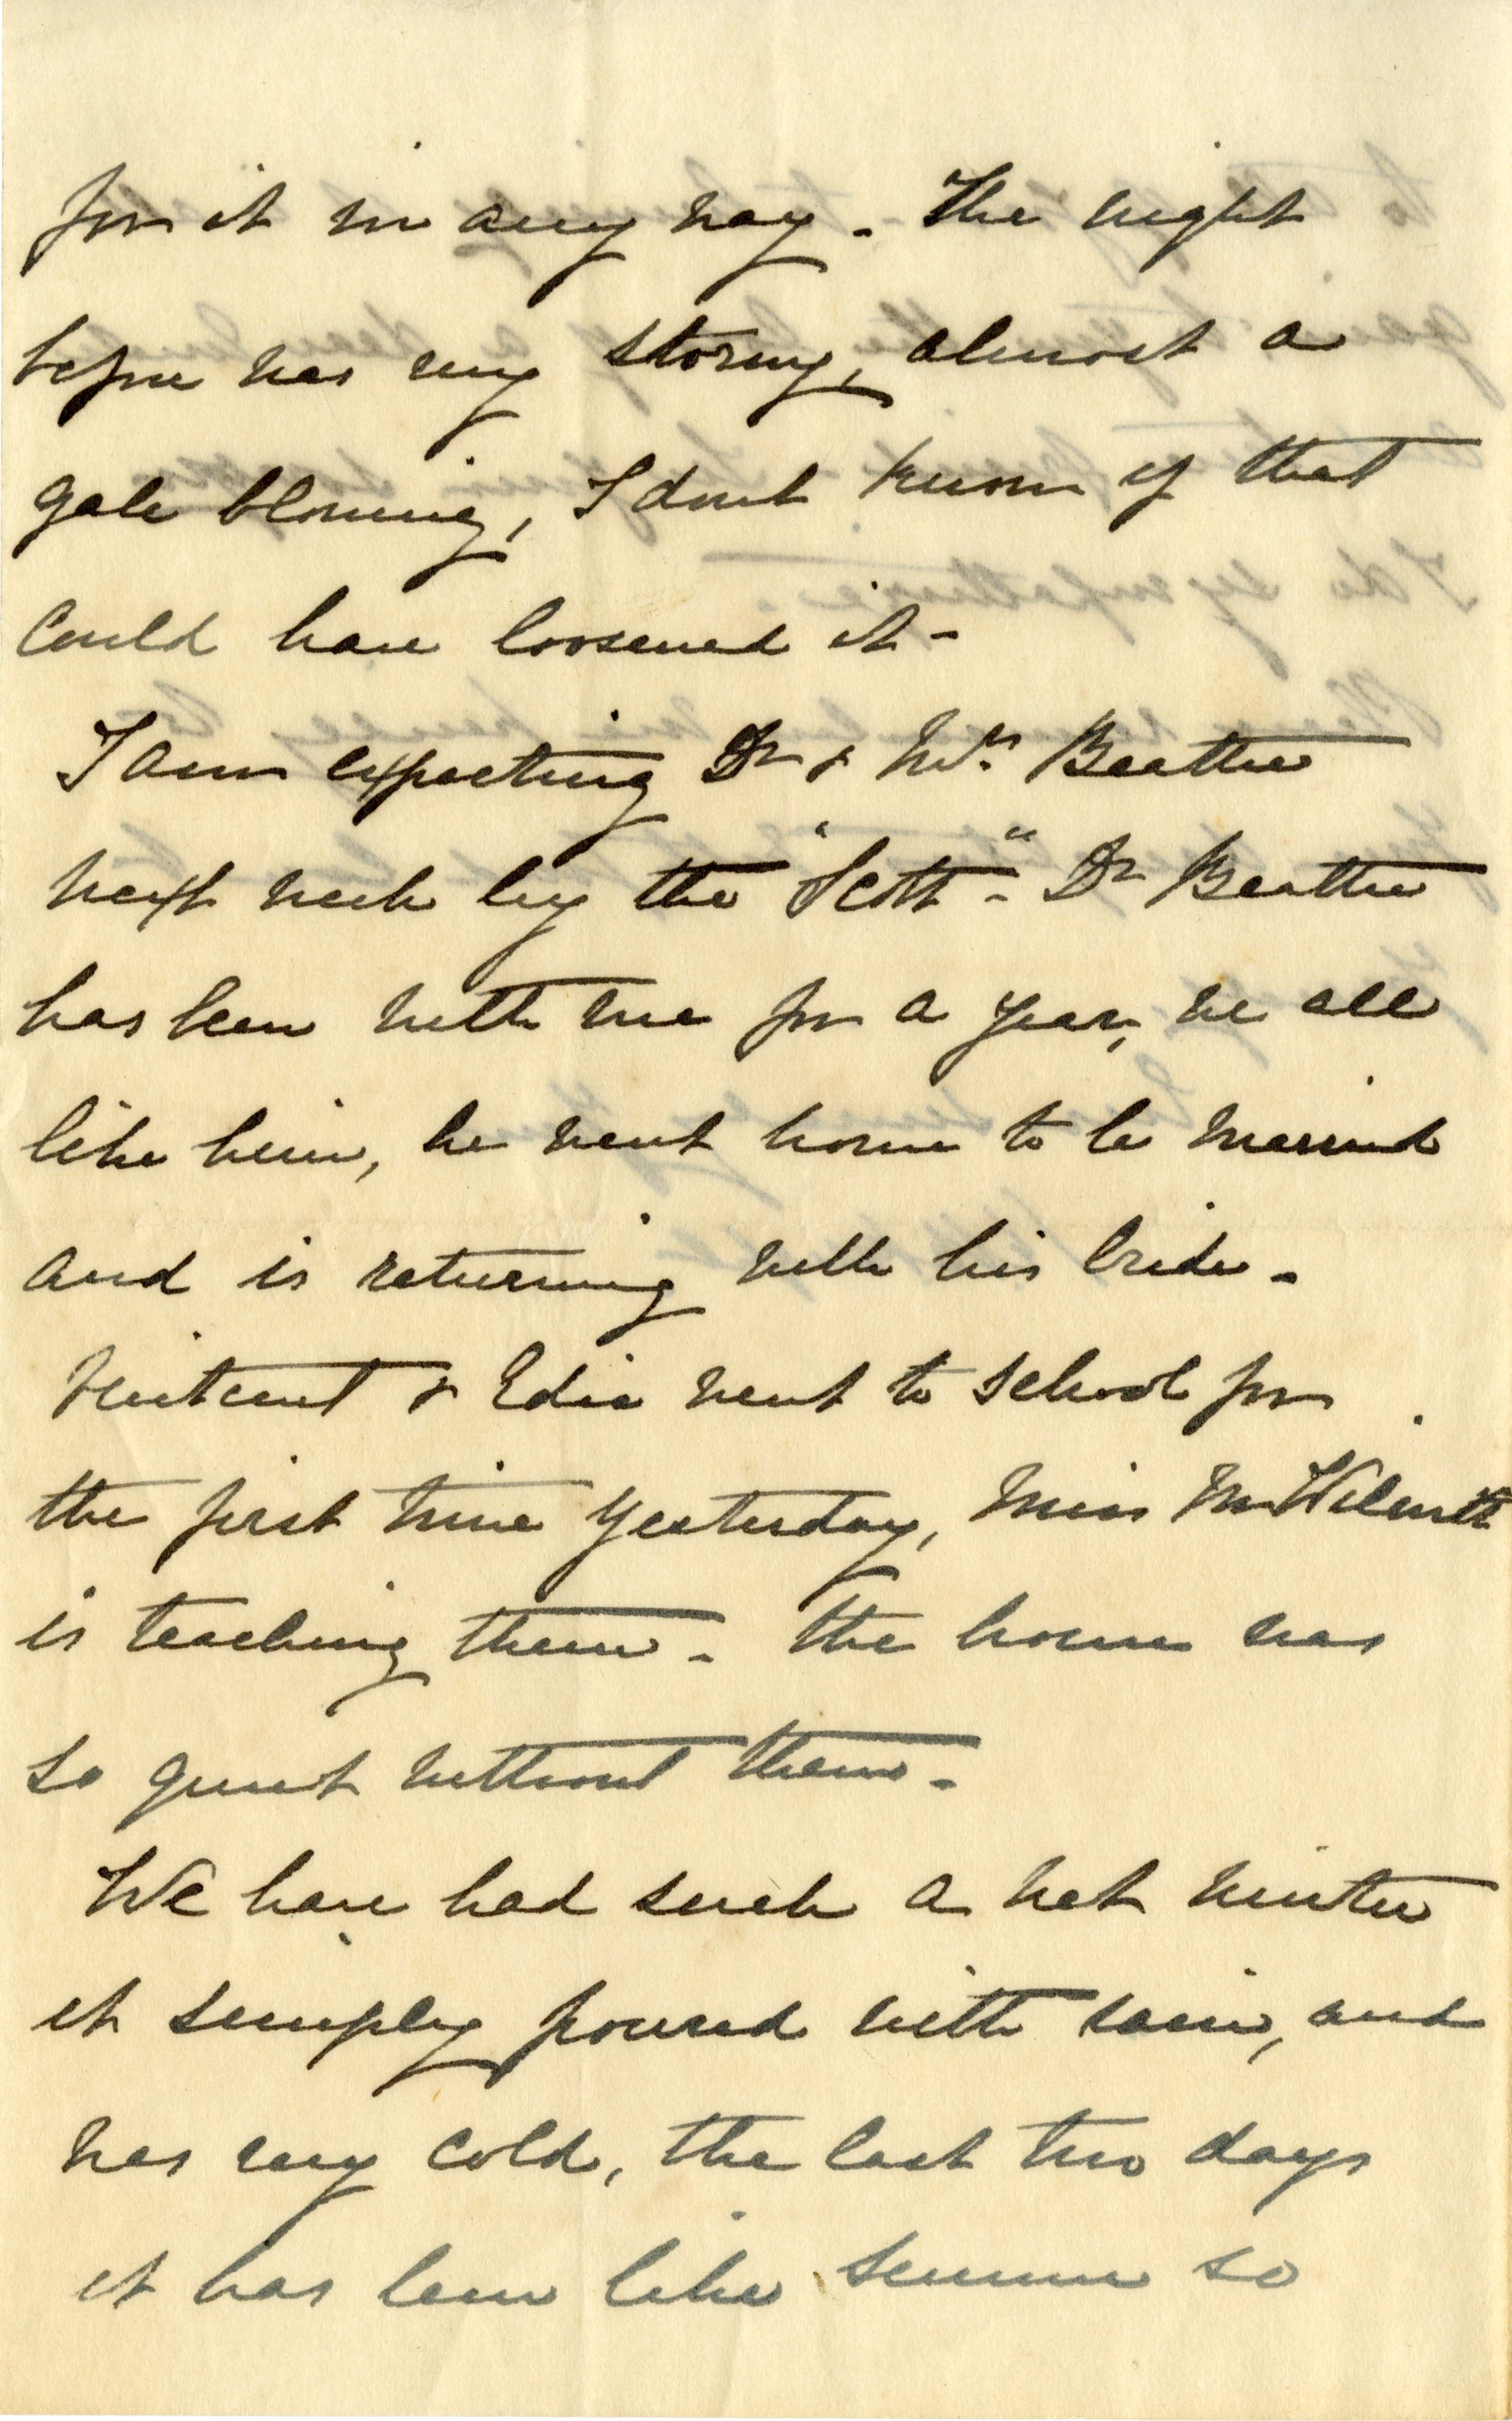 for it in any way - The night
before was very stormy, almost a
gale blowing, I dont know if that
could have loosened it -
I am expecting Dr & Mrs Beattie
next week by the "Scott" - Dr Beattie
has been with me for a year, we all
like him, he went home to be married
and is returning with his bride -
& Edie went to school for
the first time yesterday, Miss McWilmott
is teaching them - The house was
so quiet without them -
We have had such a wet winter
it simply poured with rain, and
was very cold, the last two days
it has been like summer so